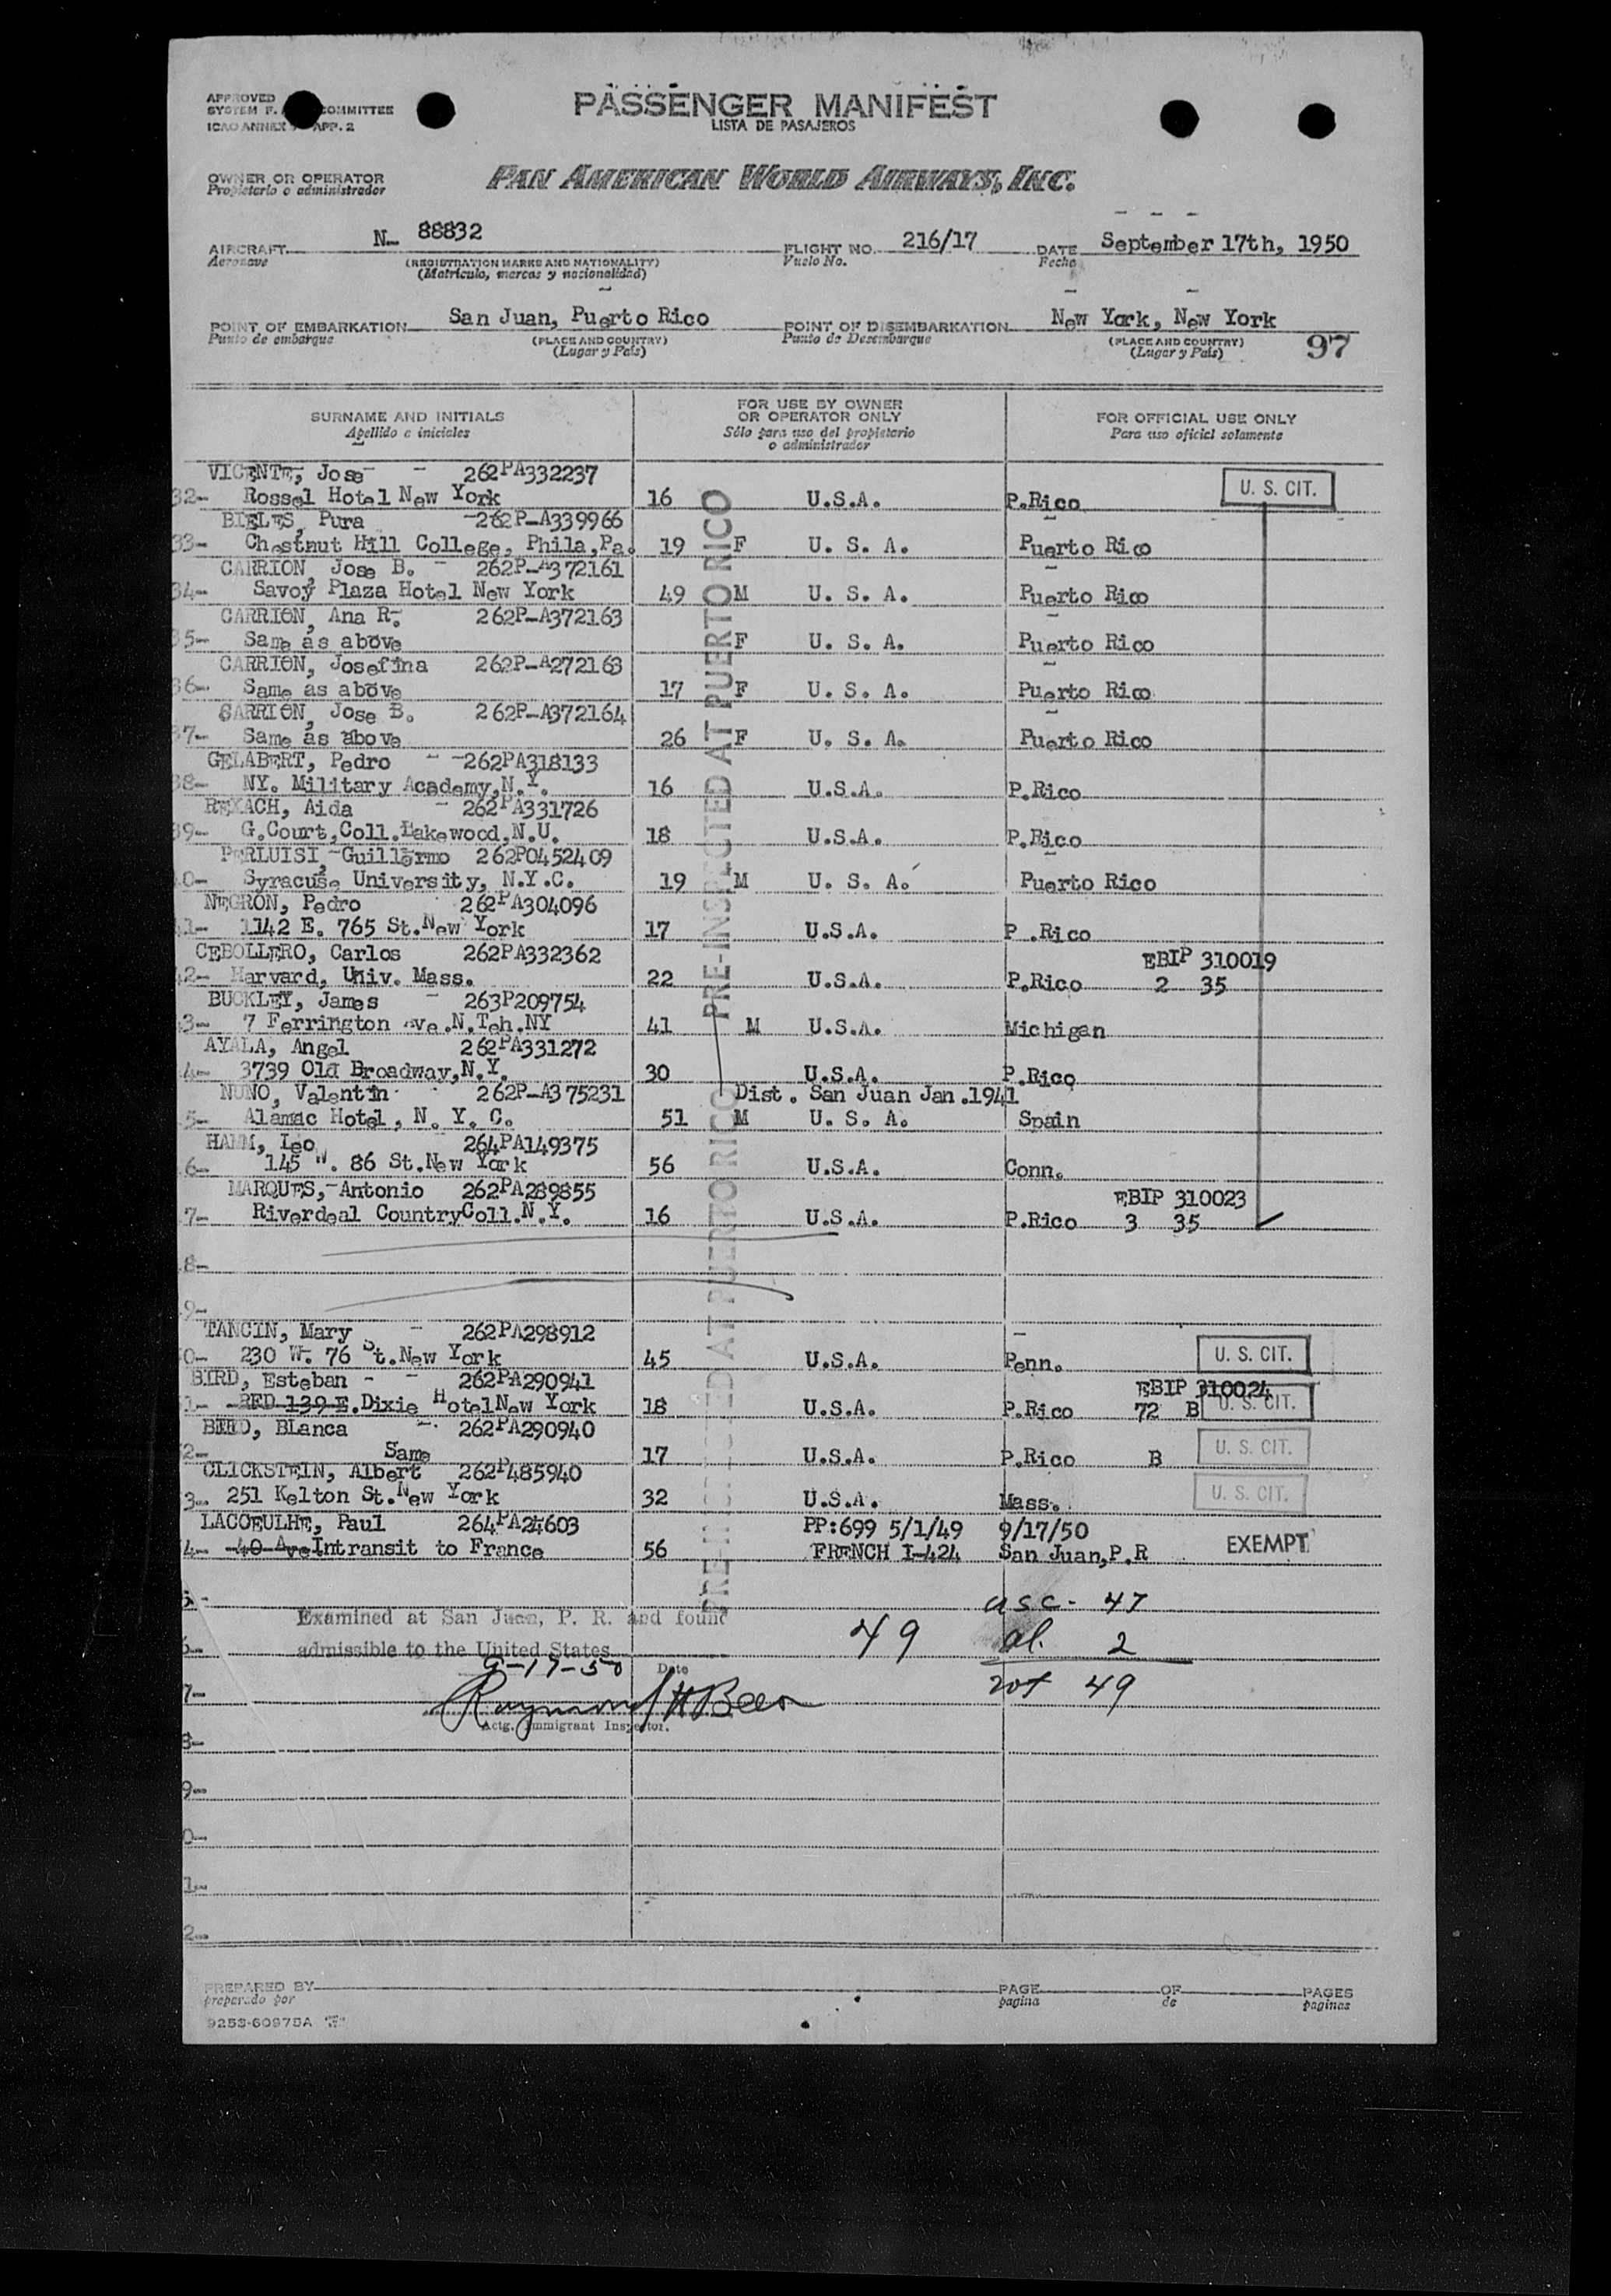 APPROVED
SYSTEM F. COMMITTEE
ICAO ANNEX 9 APP. 2
PASSENGER MANIFEST
LISTA DE PASAJEROS
OWNER OR OPERATOR
Propietario o administrador
PAN AMERICAN WORLD AIRWAYS, INC.
AIRCRAFT N- 88832 FLIGHT NO. 216/17 DATE September 17th, 1950
Aeronave (REGISTRATION MARKS AND NATIONALITY) Vuelo No. Fecha
(Matricula, marcas y nacionalidad)
POINT OF EMBARKATION San Juan, Puerto Rico POINT OF DISEMBARKATION New York, New York
Punto de embarque (PLACE AND COUNTRY) Punto de Desembarque (PLACE AND COUNTRY) 97
(Lugar y País) (Lugar y País)
SURNAME AND INITIALS FOR USE BY OWNER OR OPERATOR ONLY FOR OFFICIAL USE ONLY
Apellido e iniciales Sólo para uso del propietario o administrador Para uso oficial solamente
PRE-INSPECTED AT PUERTO RICO
VICENTE, Jose - 262PA332237
32- Rossel Hotel New York 16 U.S.A. P.Rico U. S. CIT.
BIELES, Pura -262P-A339966
33- Chestnut Hill College, Phila,Pa. 19 F U. S. A. Puerto Rico
CARRION, Jose B. - 262P-A372161
34- Savoy Plaza Hotel New York 49 M U. S. A. Puerto Rico
CARRION, Ana R. 262P-A372163
35- Same as above F U. S. A. Puerto Rico
CARRION, Josefina 262P-A272163
36- Same as above 17 F U. S. A. Puerto Rico
CARRION, Jose B. 262P-A372164
37- Same as above 26 F U. S. A. Puerto Rico
GELABERT, Pedro - -262PA318133
38- NY. Military Academy,N.Y. 16 U.S.A. P.Rico
REXACH, Aida - 262PA331726
39- G.Court,Coll.Lakewood,N.U. 18 U.S.A. P.Rico
PERLUISI, Guillermo 262P0452409
0- Syracuse University, N.Y.C. 19 M U. S. A. Puerto Rico
NEGRON, Pedro 262PA304096
1- 1142 E. 765 St.New York 17 U.S.A. P .Rico
CEBOLLERO, Carlos 262PA332362 EBIP 310019
2- Harvard, Univ. Mass. 22 U.S.A. P.Rico 2 35
BUCKLEY, James - 263P209754
3- 7 Ferrington Ave.N.Teh.NY 41 M U.S.A. Michigan
AYALA, Angel 262PA331272
4- 3739 Old Broadway,N.Y. 30 U.S.A. P.Rico
NUNO, Valentin 262P-A375231 Dist. San Juan Jan.1941
5- Alamac Hotel, N. Y. C. 51 M U. S. A. Spain
HAMM, Leo 264PA149375
6- 145 W. 86 St.New York 56 U.S.A. Conn.
MARQUES,-Antonio 262PA289855 EBIP 310023
7- Riverdeal CountryColl.N.Y. 16 U.S.A. P.Rico 3 35
8-
9-
PRE-INSPECTED AT PUERTO RICO
TANCIN, Mary - 262PA298912
0- 230 W. 76 St.New York 45 U.S.A. Penn. U. S. CIT.
BIRD, Esteban - - 262PA290941 EBIP 310024
1- RED 139 E.Dixie HotelNew York 18 U.S.A. P.Rico 72 B U. S. CIT.
BIRD, BLanca - 262PA290940
2- Same 17 U.S.A. P.Rico B U. S. CIT.
CLICKSTEIN, Albert 262P485940
3- 251 Kelton St.New York 32 U.S.A. Mass. U. S. CIT.
LACOEULHE, Paul 264PA24603 PP:699 5/1/49 9/17/50
4- 40 Ave Intransit to France 56 FRENCH I-424 San Juan,P.R EXEMPT
5- usc- 47
Examined at San Juan, P. R. and found 49 al. 2
6- admissible to the United States
9-17-50 Date
7- Raymond H Beer tot 49
Actg. Immigrant Inspector.
8-
9-
0-
1-
2-
PREPARED BY PAGE OF PAGES
preparado por pagina de paginas
9253-60975A